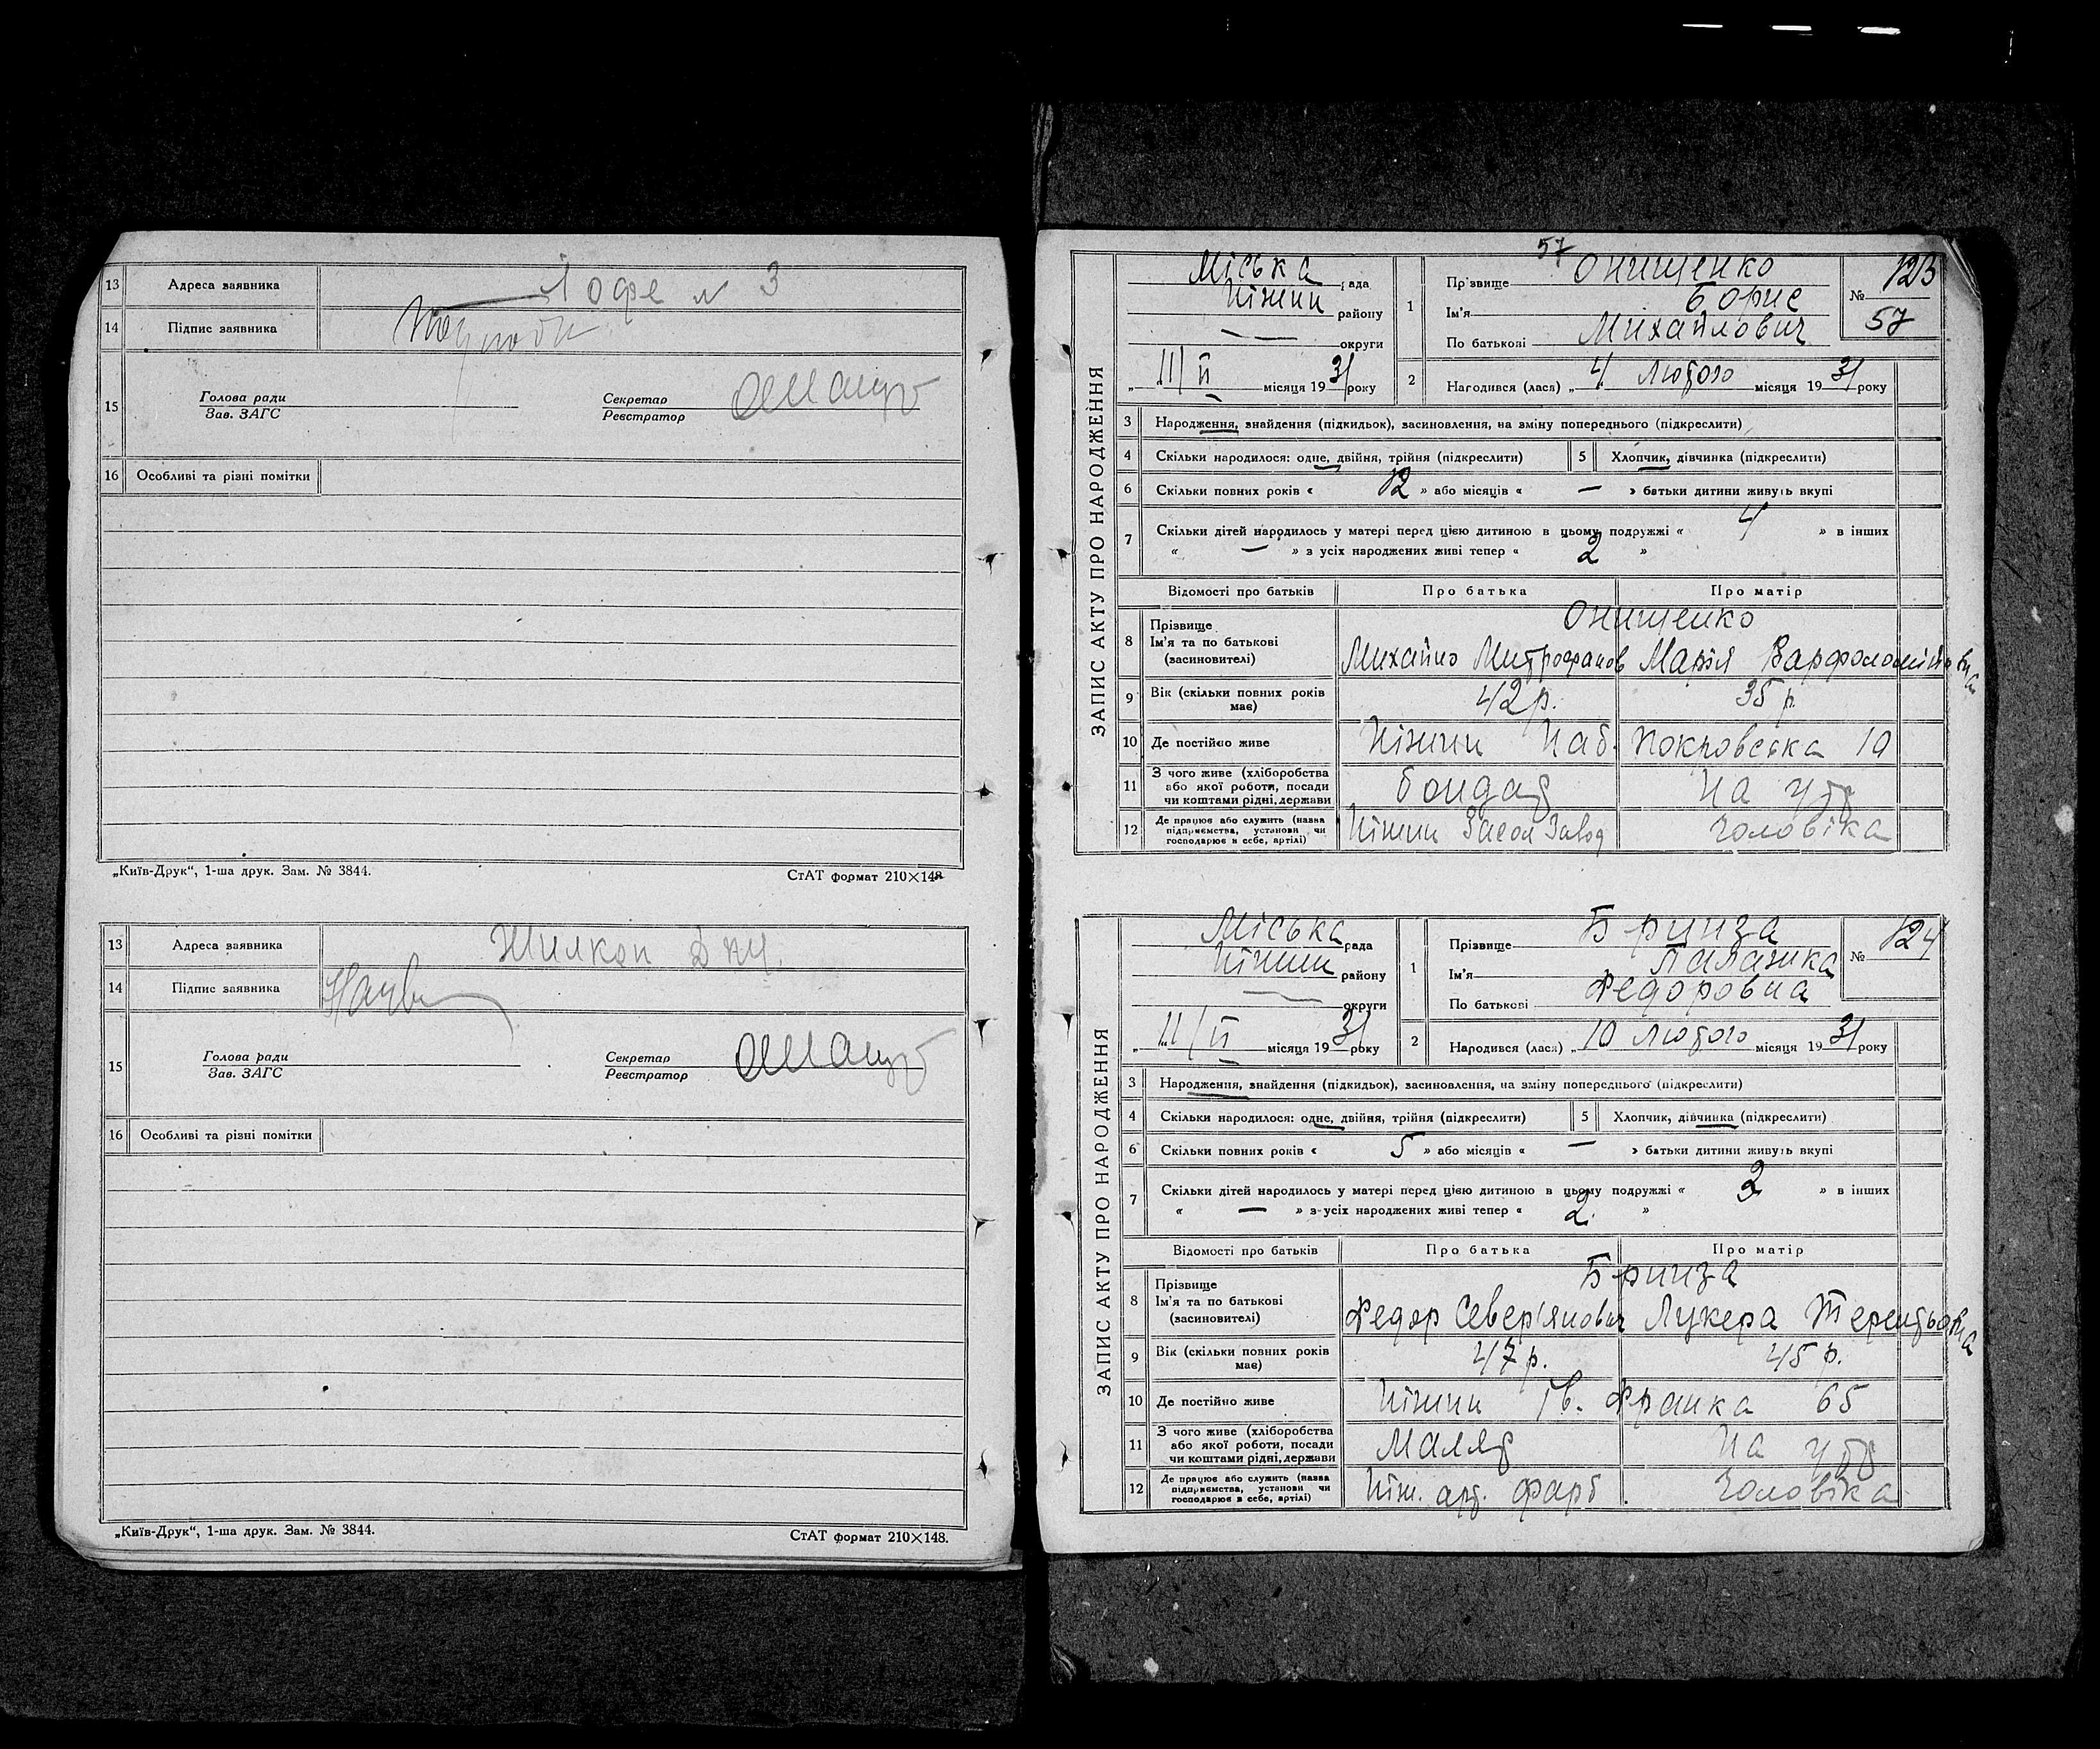 13 Адреса заявника № 3
14 Підпис заявника
15 Голова ради Зав. ЗАГС Секретар Реєстратор
16 Особливі та різні помітки
„Київ-Друк“, 1-ша друк. Зам. № 3844. СтАТ формат 210×148
13 Адреса заявника
14 Підпис заявника
15 Голова ради Зав. ЗАГС Секретар Реєстратор
16 Особливі та різні помітки
„Київ-Друк“, 1-ша друк. Зам. № 3844. СтАТ формат 210×148.
57
ЗАПИС АКТУ ПРО НАРОДЖЕННЯ
Міська рада
Ніжин району
— округи
„ 11/II місяця 1931 року
1 Прізвище Онищенко
Ім'я Борис
По батькові Михайлович
№ 123
57
2 Народився (лася) „ 4 Лютого місяця 1931 року
3 Народження, знайдення (підкидьок), засиновлення, на зміну попереднього (підкреслити)
4 Скільки народилося: одне, двійня, трійня (підкреслити) 5 Хлопчик, дівчинка (підкреслити)
6 Скільки повних років « 12 » або місяців « — » батьки дитини живуть вкупі
7 Скільки дітей народилось у матері перед цією дитиною в цьому подружжі « 4 » в інших
« — » з усіх народжених живі тепер « 2 »
Відомості про батьків Про батька Про матір
8 Прізвище Ім'я та по батькові (засиновителі) Онищенко
Михайло Митрофанов Марія Варфоломіївна
9 Вік (скільки повних років має) 42 р. 35 р.
10 Де постійно живе Ніжин Наб. Покровська 19
11 З чого живе (хліборобства або якої роботи, посади чи коштами рідні, держави бондар На утр
12 Де працює або служить (назва підприємства, установи чи господарює в себе, артілі) Ніжин Засол Завод Чоловіка
ЗАПИС АКТУ ПРО НАРОДЖЕННЯ
Міська рада
Ніжин району
— округи
„ 11/II місяця 1931 року
1 Прізвище Бринза
Ім'я Палажка
По батькові Федоровна
№ 124
2 Народився (лася) „ 10 Лютого місяця 1931 року
3 Народження, знайдення (підкидьок), засиновлення, на зміну попереднього (підкреслити)
4 Скільки народилося: одне, двійня, трійня (підкреслити) 5 Хлопчик, дівчинка (підкреслити)
6 Скільки повних років « 5 » або місяців « — » батьки дитини живуть вкупі
7 Скільки дітей народилось у матері перед цією дитиною в цьому подружжі « » в інших
« — » з усіх народжених живі тепер « 2. »
Відомості про батьків Про батька Про матір
8 Прізвище Ім'я та по батькові (засиновителі) Бринза
Федор Север'янович Лукера Терентьовна
9 Вік (скільки повних років має) 47 р. 45 р.
10 Де постійно живе Ніжин Ів. Франка 65
11 З чого живе (хліборобства або якої роботи, посади чи коштами рідні, держави Маляр На утр
12 Де працює або служить (назва підприємства, установи чи господарює в себе, артілі) Ніж. арт. фарб. Чоловіка